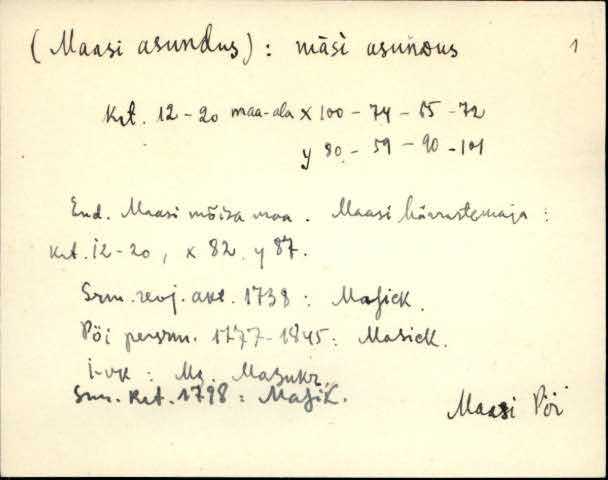 (Maasi asundus) : māsi asundus 1
Krt. 12-20 maa-ala x 100 - 74 - 85 - 72
y 80 - 59 - 90 - 101
End. Maasi mõisa maa. Maasi häärustemaja :
Krt. 12-20, x 82 y 87.
Srm. revj. akt. 1738 : Masick.
Pöi persrm. 1777-1845 : Masick.
i-vk : Mz.
Srm. krt. 1798 : Masik.
Maasi Pöi